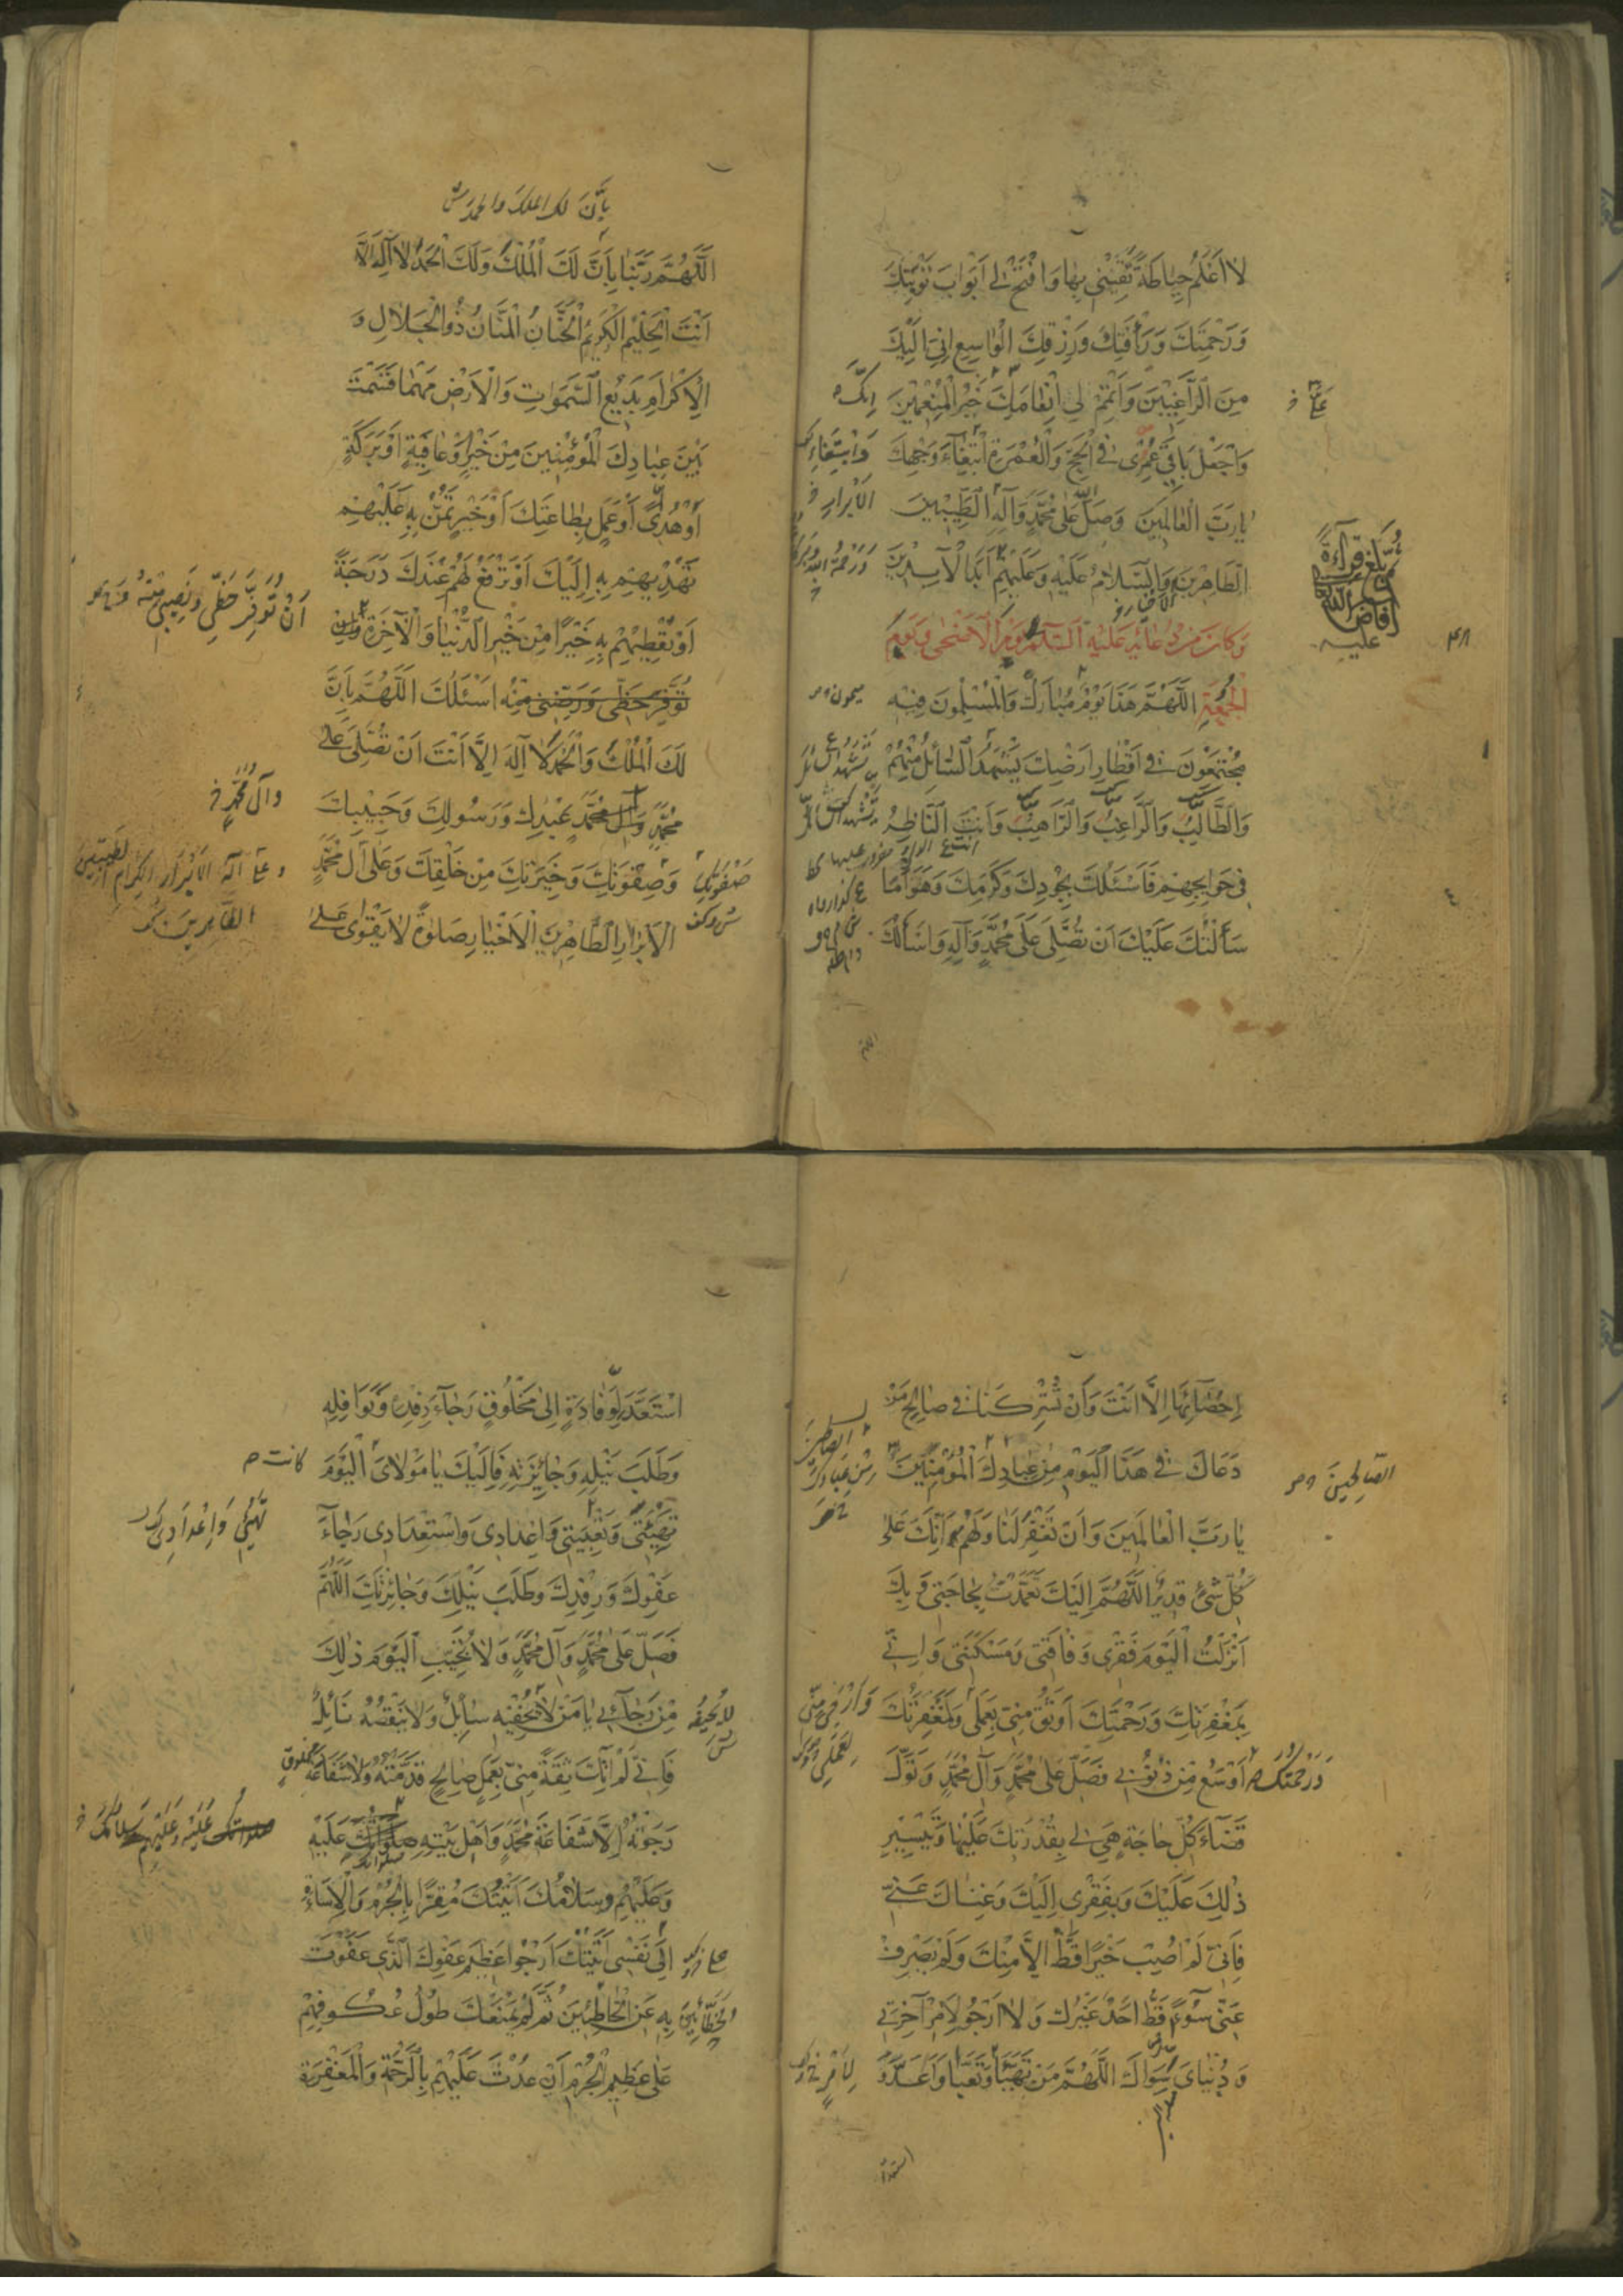 لا اَعْلَمُ حِيَاطَةً تَقِيَنِي بِهَا وَافْتَحْ لِي اَبْوَابَ تَوْبَتِكَ
وَرَحْمَتِكَ وَرَأْفَتِكَ وَرِزْقِكَ الْوَاسِعِ اِنِّي اِلَيْكَ
مِنَ الرَّاغِبِينَ وَاَتْمِمْ لِي اِنْعَامَكَ خَيْرُ الْمُنْعِمِينَ
اِنَّكَ
وَاجْعَلْ بَاقِيَ عُمْرِي فِي الْحَجِّ وَالْعُمْرَةِ ابْتِغَاءَ وَجْهِكَ
وَابْتِغَاءِ
يَا رَبَّ الْعَالَمِينَ وَصَلَّى اللّهُ عَلَى مُحَمَّدٍ وَآلِهِ الطَّيِّبِينَ
الاَبْرَارِ
الطَّاهِرِينَ وَالسَّلَامُ عَلَيْهِ وَعَلَيْهِمْ اَبَدَ الْآبِدِينَ
وَرَحْمَةُ اللّهِ وَبَرَكَاتُهُ
ثُمَّ بَلَغَ قِرَاءَةً
اَفَاضَ اللّه تعالى
عليه
وَكَانَ مِنْ دُعَائِهِ عَلَيْهِ السَّلَامُ يَوْمَ الْاَضْحَى وَيَوْمَ
الْجُمُعَةِ اللَّهُمَّ هَذَا يَوْمٌ مُبَارَكٌ وَالْمُسْلِمُونَ فِيهِ
ميمون
مُجْتَمِعُونَ فِي اَقْطَارِ اَرْضِكَ يَشْهَدُ السَّائِلُ مِنْهُمْ
وَالطَّالِبُ وَالرَّاغِبُ وَالرَّاهِبُ وَاَنْتَ النَّاظِرُ
فِي حَوَائِجِهِمْ فَاَسْئَلُكَ بِجُودِكَ وَكَرَمِكَ وَهَوَانِ مَا
سَأَلْتُكَ عَلَيْكَ اَنْ تُصَلِّيَ عَلَى مُحَمَّدٍ وَآلِهِ وَاَسْأَلُكَ
اللهم
بِاَنَّ لك الملك والحمد
اللَّهُمَّ رَبَّنَا بِاَنَّ لَكَ الْمُلْكَ وَلَكَ الْحَمْدُ لَا اِلَهَ اِلَّا
اَنْتَ الْحَلِيمُ الْكَرِيمُ الْحَنَّانُ الْمَنَّانُ ذُو الْجَلَالِ وَ
الْاِكْرَامِ بَدِيعُ السَّمَوَاتِ وَالْاَرْضِ مَهْمَا قَسَمْتَ
بَيْنَ عِبَادِكَ الْمُؤْمِنِينَ مِنْ خَيْرٍ اَوْ عَافِيَةٍ اَوْ بَرَكَةٍ
اَوْ هُدًى اَوْ عَمَلٍ بِطَاعَتِكَ اَوْ خَيْرٍ تَمُنُّ بِهِ عَلَيْهِمْ
تَهْدِيهِمْ بِهِ اِلَيْكَ اَوْ تَرْفَعُ لَهُمْ عِنْدَكَ دَرَجَةً
اَنْ تُوَفِّرَ حَظِّي وَنَصِيبِي مِنْهُ
اَوْ تُعْطِيهِمْ بِهِ خَيْرًا مِنْ خَيْرِ الدُّنْيَا وَالْآخِرَةِ
تُوَفِّرَ حَظِّي مِنْهُ اَسْئَلُكَ اللَّهُمَّ بِاَنَّ
لَكَ الْمُلْكَ وَالْحَمْدَ لَا اِلَهَ اِلَّا اَنْتَ اَنْ تُصَلِّيَ عَلَى
مُحَمَّدٍ وَآلِ مُحَمَّدٍ عَبْدِكَ وَرَسُولِكَ وَحَبِيبِكَ
وَآلِ مُحَمَّدٍ
صَفْوَتِكَ
وَصِفْوَتِكَ وَخِيَرَتِكَ مِنْ خَلْقِكَ وَعَلَى آلِ مُحَمَّدٍ
وعلى آله الاَبْرَار الكِرَام الطيبين
الطَّاهِرِينَ
الْاَبْرَارِ الطَّاهِرِينَ الْاَخْيَارِ صَلَوةً لَا يَقْوَى عَلَى
اِحْصَائِهَا اِلَّا اَنْتَ وَاَنْ تُشْرِكَنَا فِي صَالِحِ مَنْ
دَعَاكَ فِي هَذَا الْيَوْمِ مِنْ عِبَادِكَ الْمُؤْمِنِينَ
الصَّالِحِينَ
يَا رَبَّ الْعَالَمِينَ وَاَنْ تَغْفِرَ لَنَا وَلَهُمْ اِنَّكَ عَلَى
كُلِّ شَيْءٍ قَدِيرٌ اللَّهُمَّ اِلَيْكَ تَعَمَّدْتُ بِحَاجَتِي وَبِكَ
اَنْزَلْتُ الْيَوْمَ فَقْرِي وَفَاقَتِي وَمَسْكَنَتِي وَاِنِّي
بِمَغْفِرَتِكَ وَرَحْمَتِكَ اَوْثَقُ مِنِّي بِعَمَلِي وَلَمَغْفِرَتُكَ
وَرَحْمَتُكَ اَوْسَعُ مِنْ ذُنُوبِي فَصَلِّ عَلَى مُحَمَّدٍ وَآلِ مُحَمَّدٍ وَتَوَلَّ
قَضَاءَ كُلِّ حَاجَةٍ هِيَ لِي بِقُدْرَتِكَ عَلَيْهَا وَتَيْسِيرِ
ذَلِكَ عَلَيْكَ وَبِفَقْرِي اِلَيْكَ وَغِنَاكَ عَنِّي
فَاِنِّي لَمْ اُصِبْ خَيْرًا قَطُّ اِلَّا مِنْكَ وَلَمْ يَصْرِفْ
عَنِّي سُوءًا قَطُّ اَحَدٌ غَيْرُكَ وَلَا اَرْجُو لِاَمْرِ آخِرَتِي
وَدُنْيَايَ سِوَاكَ اللَّهُمَّ مَنْ تَهَيَّأَ وَتَعَبَّأَ وَاَعَدَّ وَ
استعد
اسْتَعَدَّ لِوِفَادَةٍ اِلَى مَخْلُوقٍ رَجَاءَ رِفْدِهِ وَنَوَافِلِهِ
وَطَلَبَ نَيْلِهِ وَجَائِزَتِهِ فَاِلَيْكَ يَا مَوْلَايَ الْيَوْمَ
كانت
تَهْيِئَتِي وَتَعْبِيَتِي وَاِعْدَادِي وَاسْتِعْدَادِي رَجَاءَ
عَفْوِكَ وَرِفْدِكَ وَطَلَبَ نَيْلِكَ وَجَائِزَتِكَ اللَّهُمَّ
فَصَلِّ عَلَى مُحَمَّدٍ وَآلِ مُحَمَّدٍ وَلَا تُخَيِّبِ الْيَوْمَ ذَلِكَ
مِنْ رَجَائِي يَا مَنْ لَا يُحْفِيهِ سَائِلٌ وَلَا يَنْقُصُهُ نَائِلٌ
فَاِنِّي لَمْ آتِكَ ثِقَةً مِنِّي بِعَمَلٍ صَالِحٍ قَدَّمْتُهُ وَلَا شَفَاعَةِ
مَخْلُوقٍ
رَجَوْتُهُ اِلَّا شَفَاعَةَ مُحَمَّدٍ وَاَهْلِ بَيْتِهِ صَلَوَاتُكَ عَلَيْهِ
وَعَلَيْهِمْ وَسَلَامُكَ اَتَيْتُكَ مُقِرًّا بِالْجُرْمِ وَالْاِسَاءَةِ
اِلَى نَفْسِي اَتَيْتُكَ اَرْجُو عَظِيمَ عَفْوِكَ الَّذِي عَفَوْتَ
بِهِ عَنِ الْخَاطِئِينَ ثُمَّ لَمْ يَمْنَعْكَ طُولُ عُكُوفِهِمْ
عَلَى عَظِيمِ الْجُرْمِ اَنْ عُدْتَ عَلَيْهِمْ بِالرَّحْمَةِ وَالْمَغْفِرَةِ